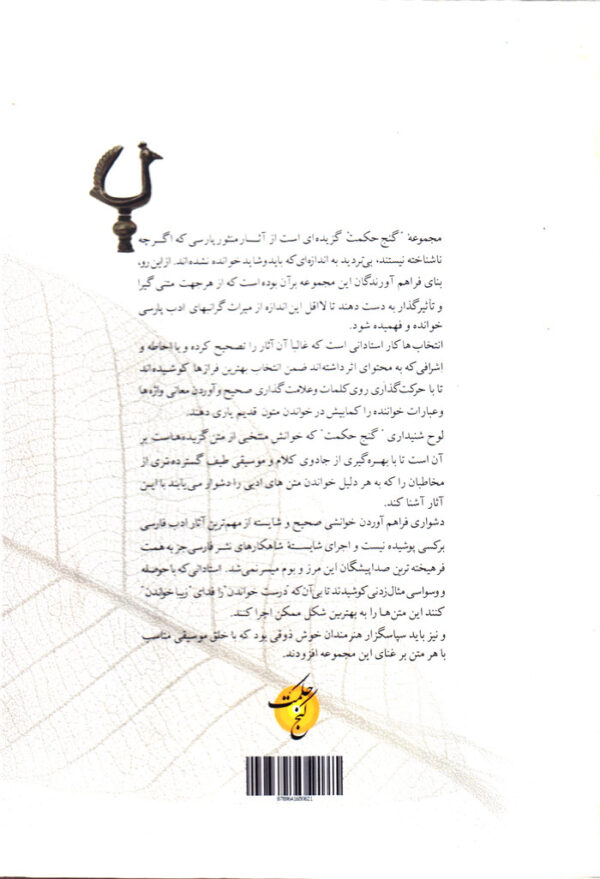 مجموعهٔ "گنج حکمت" گزیده‌ای است از آثار منثور پارسی که اگرچه
ناشناخته نیستند، بی‌تردید به اندازه‌ای که باید و شاید خوانده نشده‌اند. از این رو،
بنای فراهم آورندگان این مجموعه برآن بوده است که از هرجهت متنی گیرا
و تأثیرگذار به دست دهند تا لااقل این اندازه از میراث گرانبهای ادب پارسی
خوانده و فهمیده شود.
انتخاب‌ها کار استادانی است که غالباً آن آثار را تصحیح کرده و با احاطه و
اشرافی که به محتوای اثر داشته‌اند ضمن انتخاب بهترین فرازها کوشیده‌اند
تا با حرکت‌گذاری روی کلمات وعلامت گذاری صحیح وآوردن معانی واژه‌ها
و عبارات خواننده را کمابیش در خواندن متون قدیم یاری دهند.
لوح شنیداری "گنج حکمت" که خوانش منتخبی از متن گزیده‌هاست بر
آن است تا با بهره‌گیری از جادوی کلام و موسیقی طیف گسترده‌تری از
مخاطبان را که به هر دلیل خواندن متن های ادبی را دشوار می‌یابند با این
آثار آشنا کند.
دشواری فراهم آوردن خوانشی صحیح و شایسته از مهم‌ترین آثار ادب فارسی
برکسی پوشیده نیست و اجرای شایستهٔ شاهکارهای نثر فارسی جز به همت
فرهیخته ترین صداپیشگان این مرز و بوم میسر نمی‌شد. استادانی که با حوصله
و وسواسی مثال‌زدنی کوشیدند تا بی‌آن که "درست خواندن" را فدای "زیبا خواندن"
کنند این متن‌ها را به بهترین شکل ممکن اجرا کنند.
و نیز باید سپاسگزار هنرمندان خوش ذوقی بود که با خلق موسیقی متناسب
با هر متن بر غنای این مجموعه افزودند.
گنج حکمت